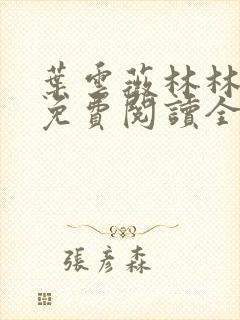 葉雲薇林林
免費閱讀全
張彥森